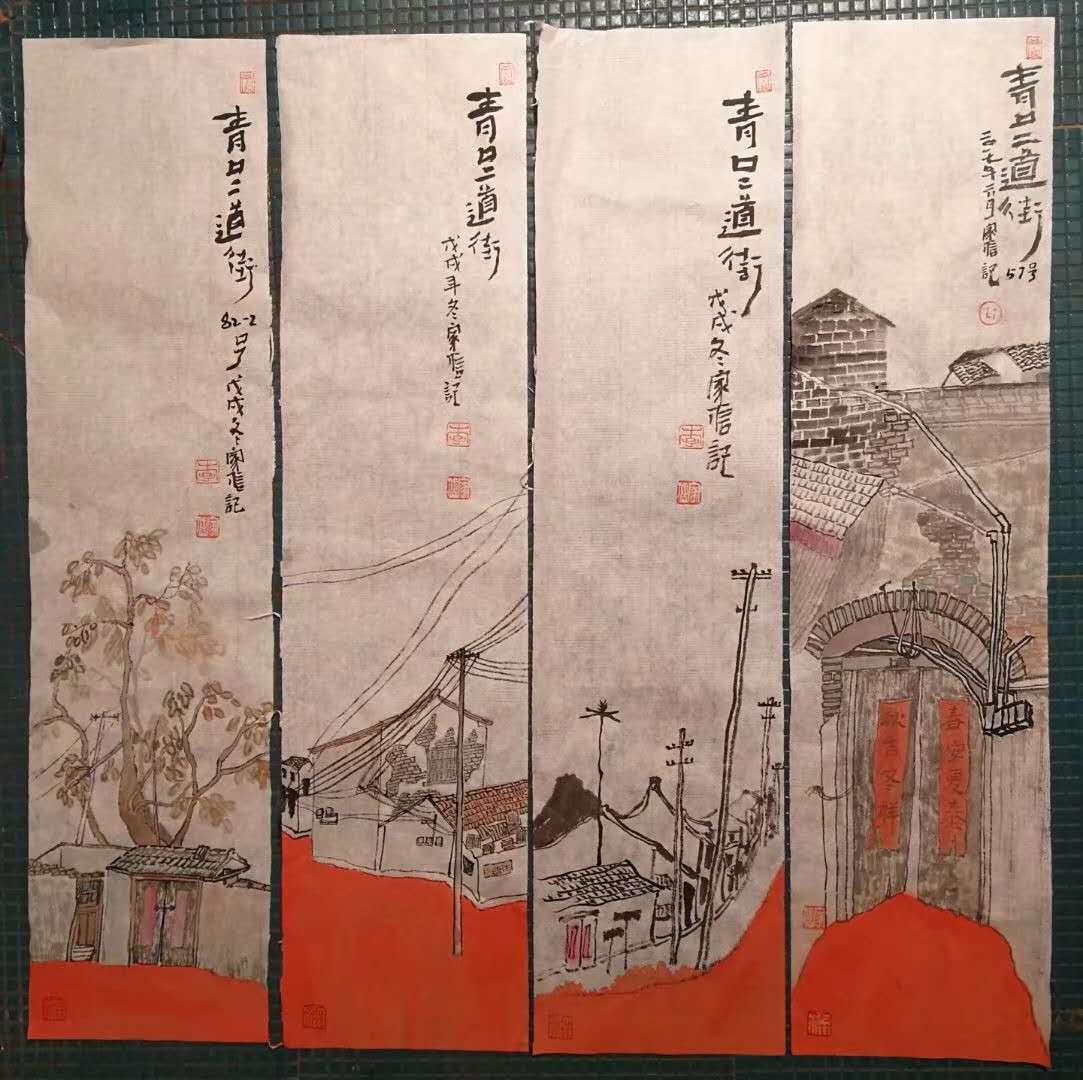 青口二道街
82-2号 戊戌冬家信記
青口二道街
戊戌年冬家信記
青口二道街
戊戌冬家信記
青口二道街 57号
二〇一九年 月家信記
Li
春安夏泰
秋吉冬祥